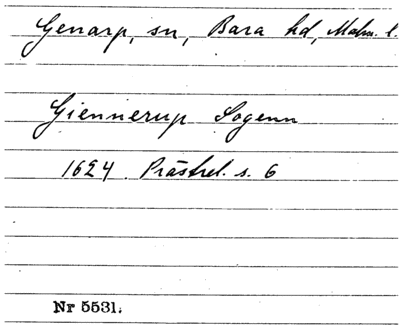 Genarp, sn, Bara hd, Malm. l.
Giennerup Sogenn
1624 Prästrel. s. 6
Nr 5531.